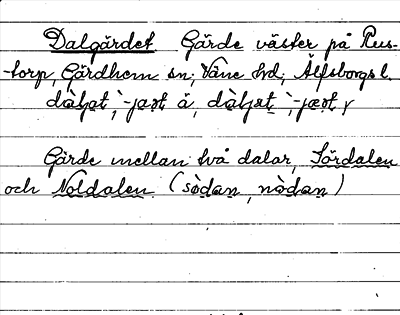 Dalgärdet Gärde väster på Rus-
torp, Gärdhem sn, Väne hd, Älfsborgs l.
Gärde mellan två dalar, Sördalen
och Noldalen (sòdan, nòdan)